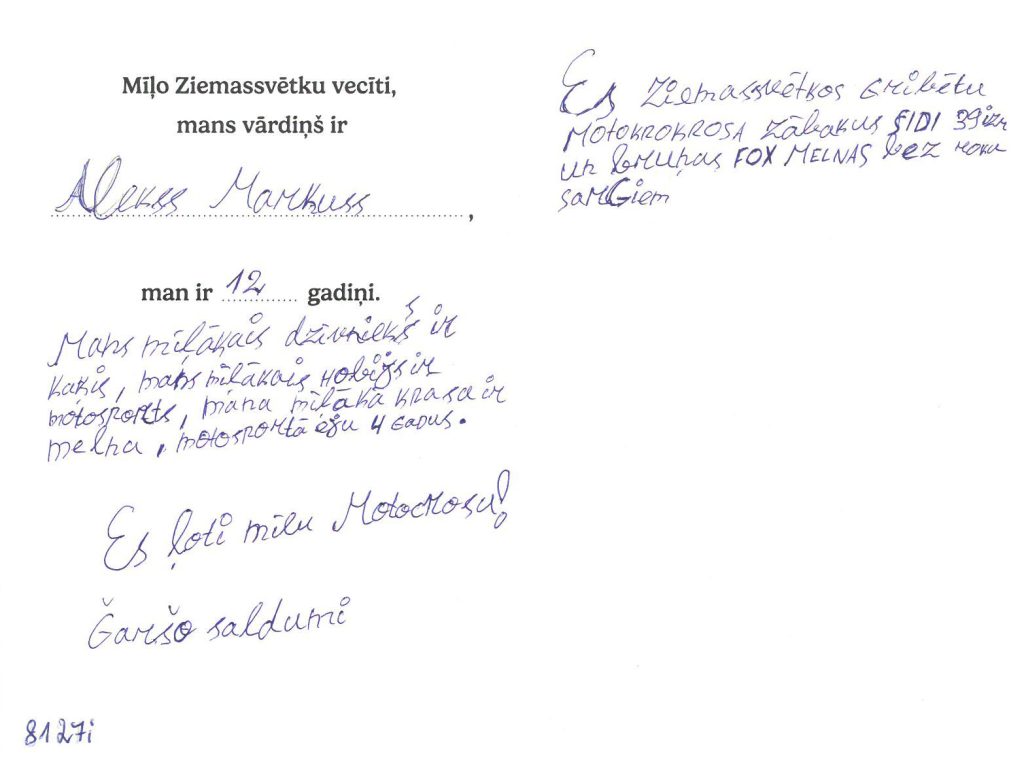 Mīļo Ziemassvētku vecīti,
mans vārdiņš ir
Alekss Markuss,
man ir 12 gadiņi.
Mans mīļākais dzīvnieks ir
kaķis, mans mīlākais hobijs ir
motosports, mana mīlākā krasa ir
melna, motosportā eju 4 gadus.
Es ļoti mīlu Motocrosu!
Garšo saldumi
8127i
Es Ziemassvētkos gribētu
MOTOKROKROSA zābakus SIDI 39 izm
un bruņas FOX MELNAS bez roku
sarGiem